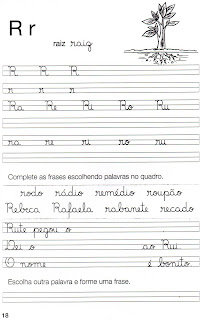 R r
raiz raiz
R R R
r r r
Ra Re Ri Ro Ru
ra re ri ro ru
Complete as frases escolhendo palavras no quadro.
rodo rádio remédio roupão
Rebeca Rafaela rabanete recado
Rute pegou o
Dei o ao Rui
O nome é bonito
Escolha outra palavra e forme uma frase.
18